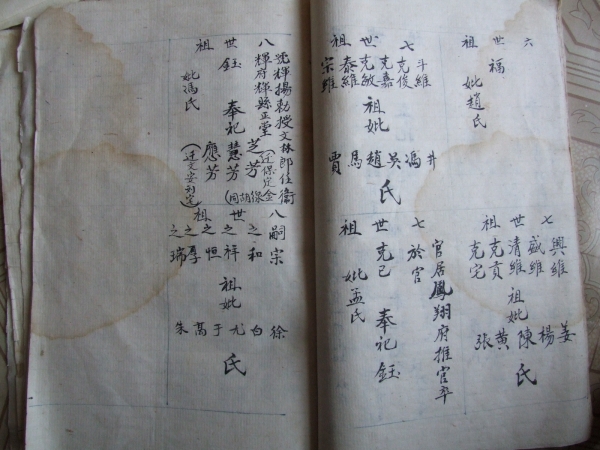 六世祖
福
妣趙氏
七世祖
斗維
克俊
克嘉
克敏
泰維
宗維
祖妣
井馮吳趙馬賈
氏
七世祖
興維
盛維
清維
克貢
克宅
祖妣
姜楊陳黃張
氏
七世祖
官居鳳翔府推官卒
於官
克己 奉祀鈺
妣孟氏
八世祖
號輝揚勅授文林郎任衛
輝府輝縣正堂
鈺 奉祀
芝芳
(迁保定金
線胡同)
慧芳
應芳
妣馮氏
八世祖
嗣宗
之和
之祥
之恒
之厚
之瑞
祖妣
徐白尤于萬朱
氏